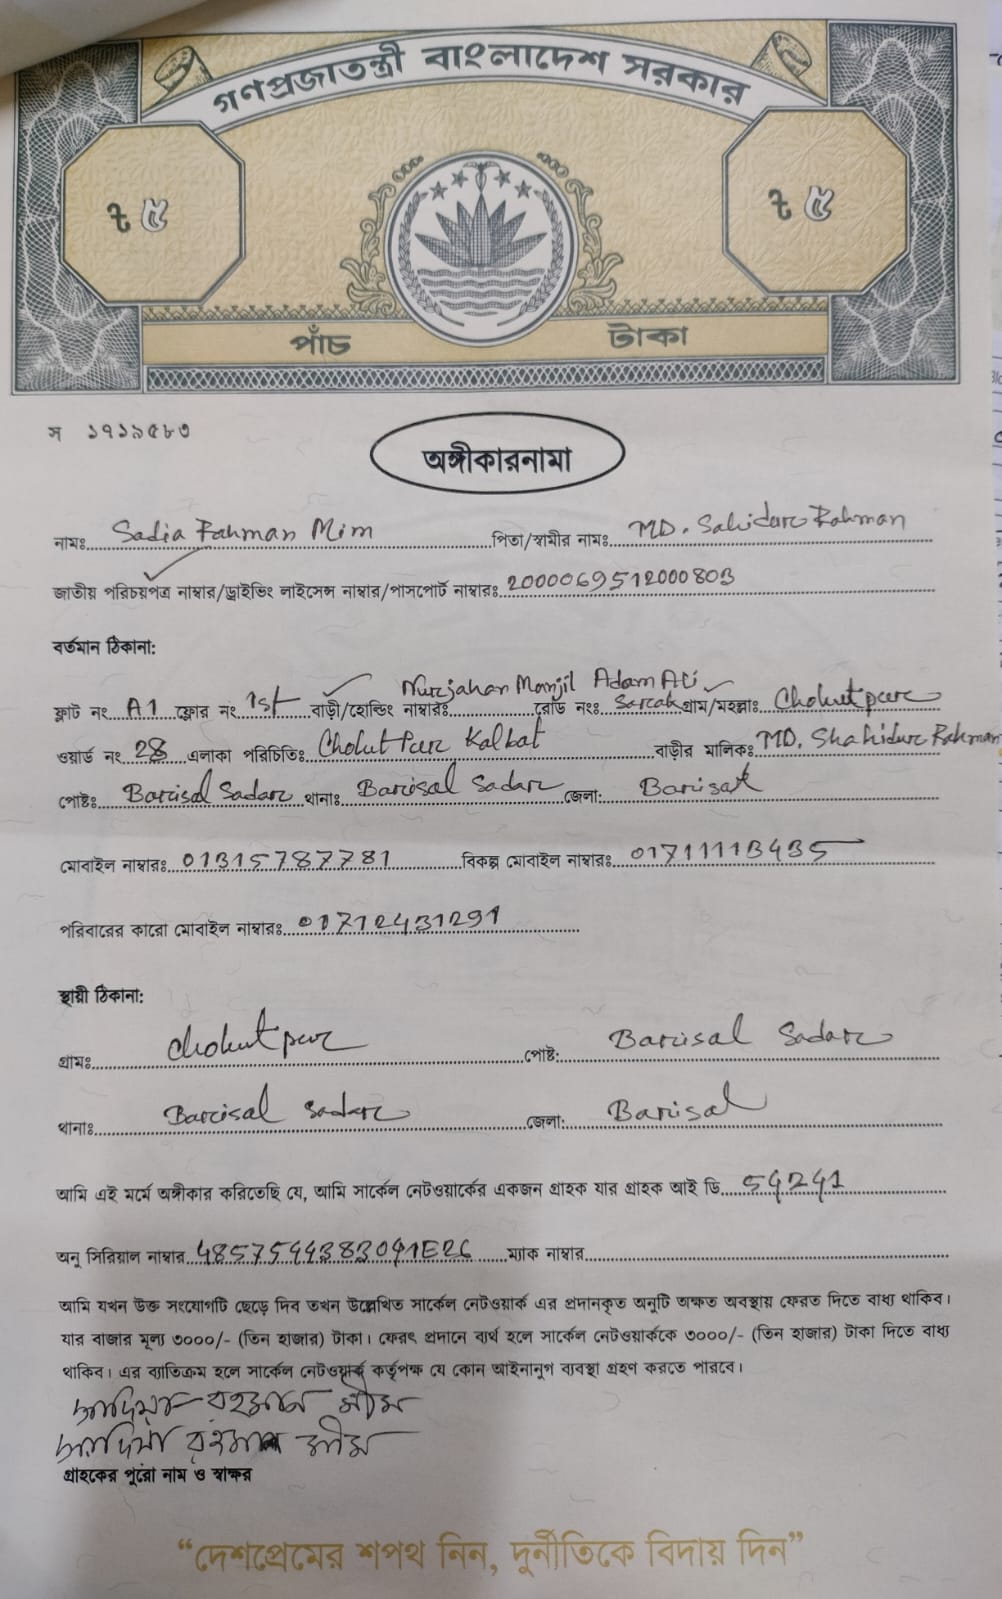 গণপ্রজাতন্ত্রী বাংলাদেশ সরকার
৳ ৫ ৳ ৫
পাঁচ টাকা
স ১৭১৯৫৮৩
অঙ্গীকারনামা
নামঃ Sadia Rahman Mim পিতা/স্বামীর নামঃ MD. Sahidur Rahman
জাতীয় পরিচয়পত্র নাম্বার/ড্রাইভিং লাইসেন্স নাম্বার/পাসপোর্ট নাম্বারঃ 2000069512000803
বর্তমান ঠিকানা:
ফ্লাট নং A1 ফ্লোর নং 1st বাড়ী/হোল্ডিং নাম্বারঃ Nurjahan Manjil রোড নংঃ Adam Ali Sarak গ্রাম/মহল্লাঃ Chohutpur
ওয়ার্ড নং 28 এলাকা পরিচিতিঃ Chohutpur বাড়ীর মালিকঃ MD. Shahidur Rahman
পোষ্টঃ Barisal Sadar থানাঃ Barisal Sadar জেলা: Barisal
মোবাইল নাম্বারঃ 01315787781 বিকল্প মোবাইল নাম্বারঃ 01711113435
পরিবারের কারো মোবাইল নাম্বারঃ 01712431291
স্থায়ী ঠিকানা:
গ্রামঃ Chohutpur পোষ্ট: Barisal Sadar
থানাঃ Barisal Sadar জেলা: Barisal
আমি এই মর্মে অঙ্গীকার করিতেছি যে, আমি সার্কেল নেটওয়ার্কের একজন গ্রাহক যার গ্রাহক আই ডি 54241
অনু সিরিয়াল নাম্বার ম্যাক নাম্বার
আমি যখন উক্ত সংযোগটি ছেড়ে দিব তখন উল্লেখিত সার্কেল নেটওয়ার্ক এর প্রদানকৃত অনুটি অক্ষত অবস্থায় ফেরত দিতে বাধ্য থাকিব।
যার বাজার মূল্য ৩০০০/- (তিন হাজার) টাকা। ফেরৎ প্রদানে ব্যর্থ হলে সার্কেল নেটওয়ার্ককে ৩০০০/- (তিন হাজার) টাকা দিতে বাধ্য
থাকিব। এর ব্যতিক্রম হলে সার্কেল নেটওয়ার্ক কর্তৃপক্ষ যে কোন আইনানুগ ব্যবস্থা গ্রহণ করতে পারবে।
সাদিয়া রহমান মীম
সাদিয়া রহমান মীম
গ্রাহকের পুরো নাম ও স্বাক্ষর
“দেশপ্রেমের শপথ নিন, দুর্নীতিকে বিদায় দিন”